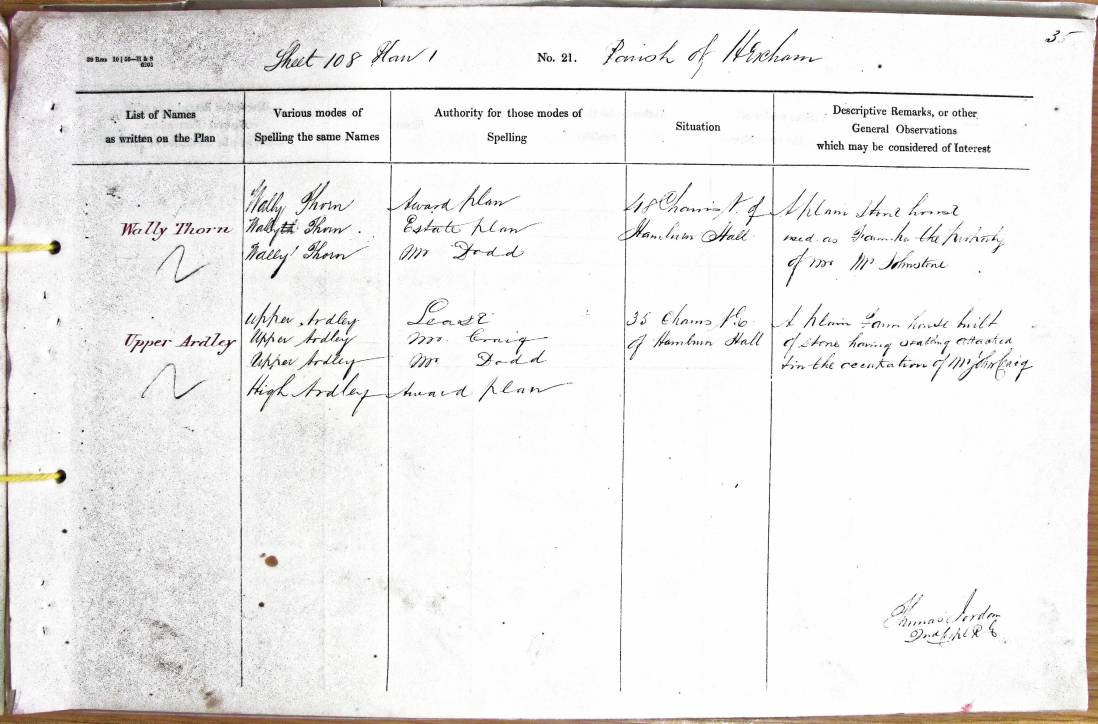 35
Sheet 108 Plan 1 No. 21. Parish of Hexham
List of Names
as written on the Plan
Various modes of
Spelling the same Names
Authority for those modes of
Spelling
Situation
Descriptive Remarks, or other
General Observations
which may be considered of Interest
Wally Thorn
Wally Thorn
Wally Thorn
Wally Thorn
Award plan
Estate plan
Mr Dodd
48 Chains N. of
Hamburn Hall
A plain stone house
used as Farm ho the property
of Mr Johnstone
Upper Ardley
Upper Ardley
Upper Ardley
Upper Ardley
High Ardley
Lease
Mr. Craig
Mr Dodd
Award plan
35 Chains N.E
of Hamburn Hall
A plain Farm house built
of stone having attached
& in the occupation of Mr John Craig
Thomas Jordan
2nd Corpl R E